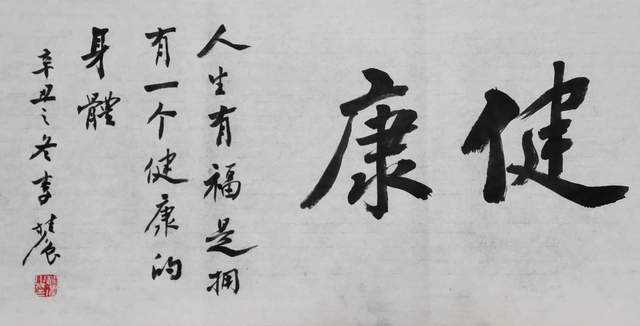 健康
人生有福是拥
有一个健康的
身體
辛丑之冬李